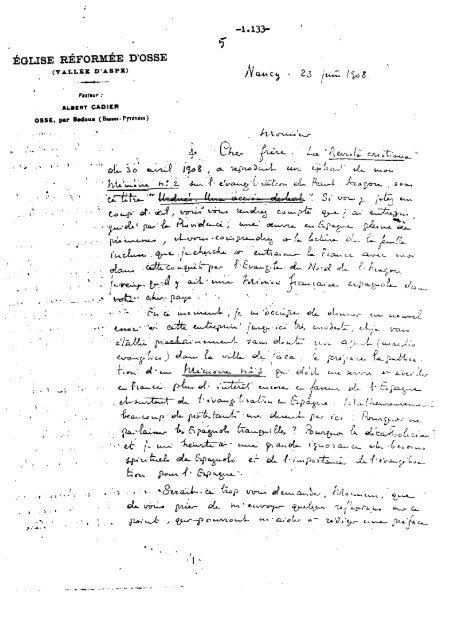 -1.133-
5
ÉGLISE RÉFORMÉE D'OSSE
(VALLÉE D'ASPE)
Pasteur :
ALBERT CADIER
OSSE, par Bedous (Basses-Pyrénées)
Nancy - 23 juin 1908
Monsieur
Cher frère. La "Revista cristiana"
du 30 avril 1908, a reproduit un extrait de mon
Mémoire n° 2 sur l'évangélisation du Haut Aragon, sous
ce titre Si vous y jetez un
coup d'œil, vous vous rendrez compte que j'ai entrepris,
guidé par la Providence, une œuvre en Espagne pleine de
promesses, et vous comprendrez à la lecture de la feuille
incluse, que je cherche à entraîner la France avec moi
dans cette conquête par l'Evangile du Nord de l'Aragon
qu'il y ait une Mission française espagnole dans
votre cher pays.
En ce moment, je m'occupe de donner un nouvel
essor à cette entreprise jusqu'ici très modeste, et je vais
établir prochainement sans doute un agent
évangéliste) dans la ville de Jaca. Je prépare la publica-
tion d'un Mémoire n° 3 qui doit en servir à éveiller
en France plus d'intérêt encore en faveur de l'Espagne
et surtout de l'évangélisation en Espagne.
beaucoup de protestants me disent par ici : Pourquoi ne
pas laisser les Espagnols tranquilles ? Pourquoi les décatholiciser
et je me heurte à une grande ignorance des besoins
spirituels des Espagnols et de l'importance de l'évangélisa-
tion pour l'Espagne.
Serait-ce trop vous demander, Monsieur, que
de vous prier de m'envoyer quelques réflexions sur ce
point, qui pourront m'aider à rédiger une préface